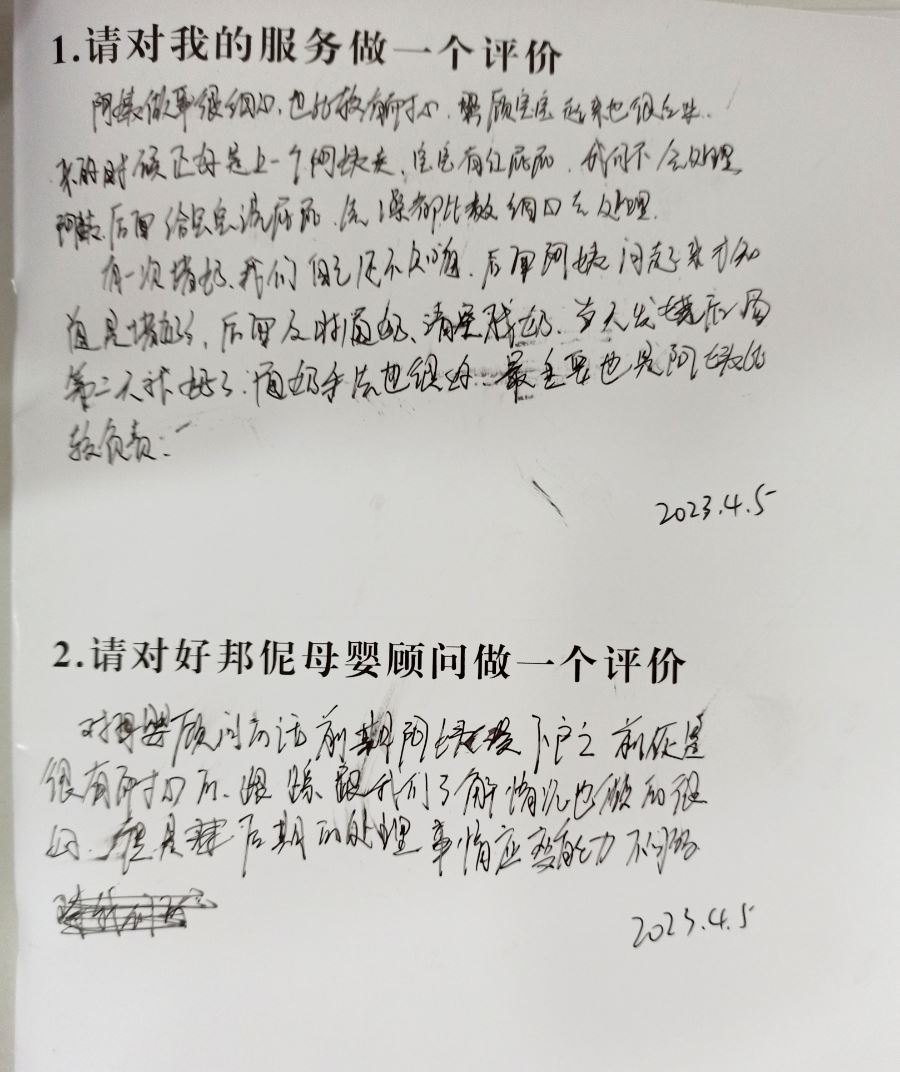 1.请对我的服务做一个评价
阿姨做事很细心,也比较有耐心,照顾宝宝起来也很
来的时候正好是上一个阿姨走,宝宝有红屁屁,我们不会处理
阿姨后面给宝宝洗屁屁,洗澡都比较细心去处理.
有一次堵奶、我们自己还不知道,后面阿姨问起来才知
道是堵奶了,后面及时通奶、清空残奶.当天发烧后面
第二天就好了.通奶手法也很好、最主要也是阿姨比
较负责:
2023.4.5
2.请对好邦伲母婴顾问做一个评价
对母婴顾问的话前期阿姨 之前还是
很有耐心的、跟踪、跟我们了解情况也做的很
好、但是 后期的处理事情应变能力不够好
2023.4.5